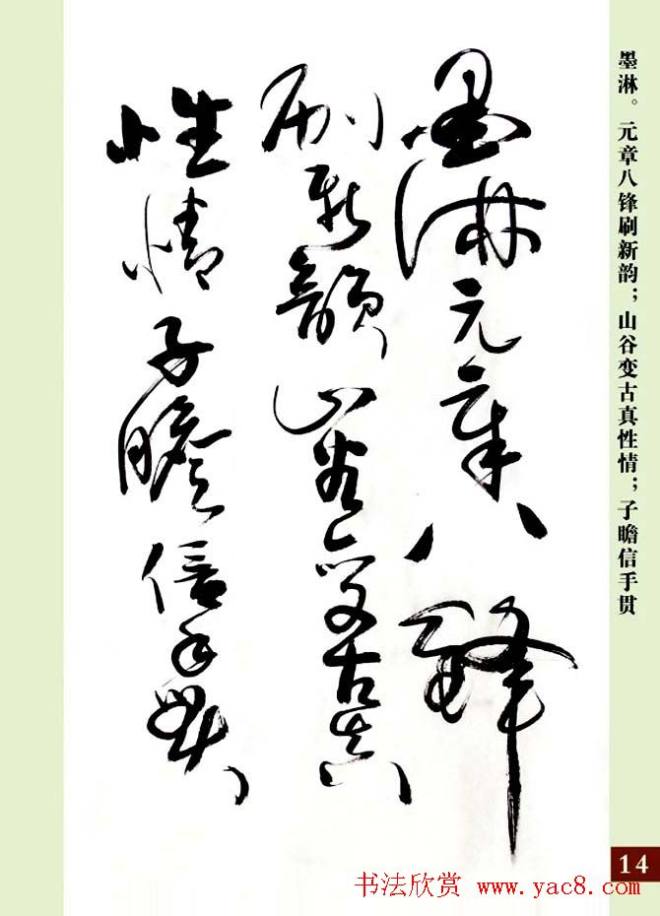 墨淋元章八锋
刷新韵山谷变古真
性情子瞻信手贯
墨淋。元章八锋刷新韵；山谷变古真性情；子瞻信手贯
14
书法欣赏 www.yac8.com